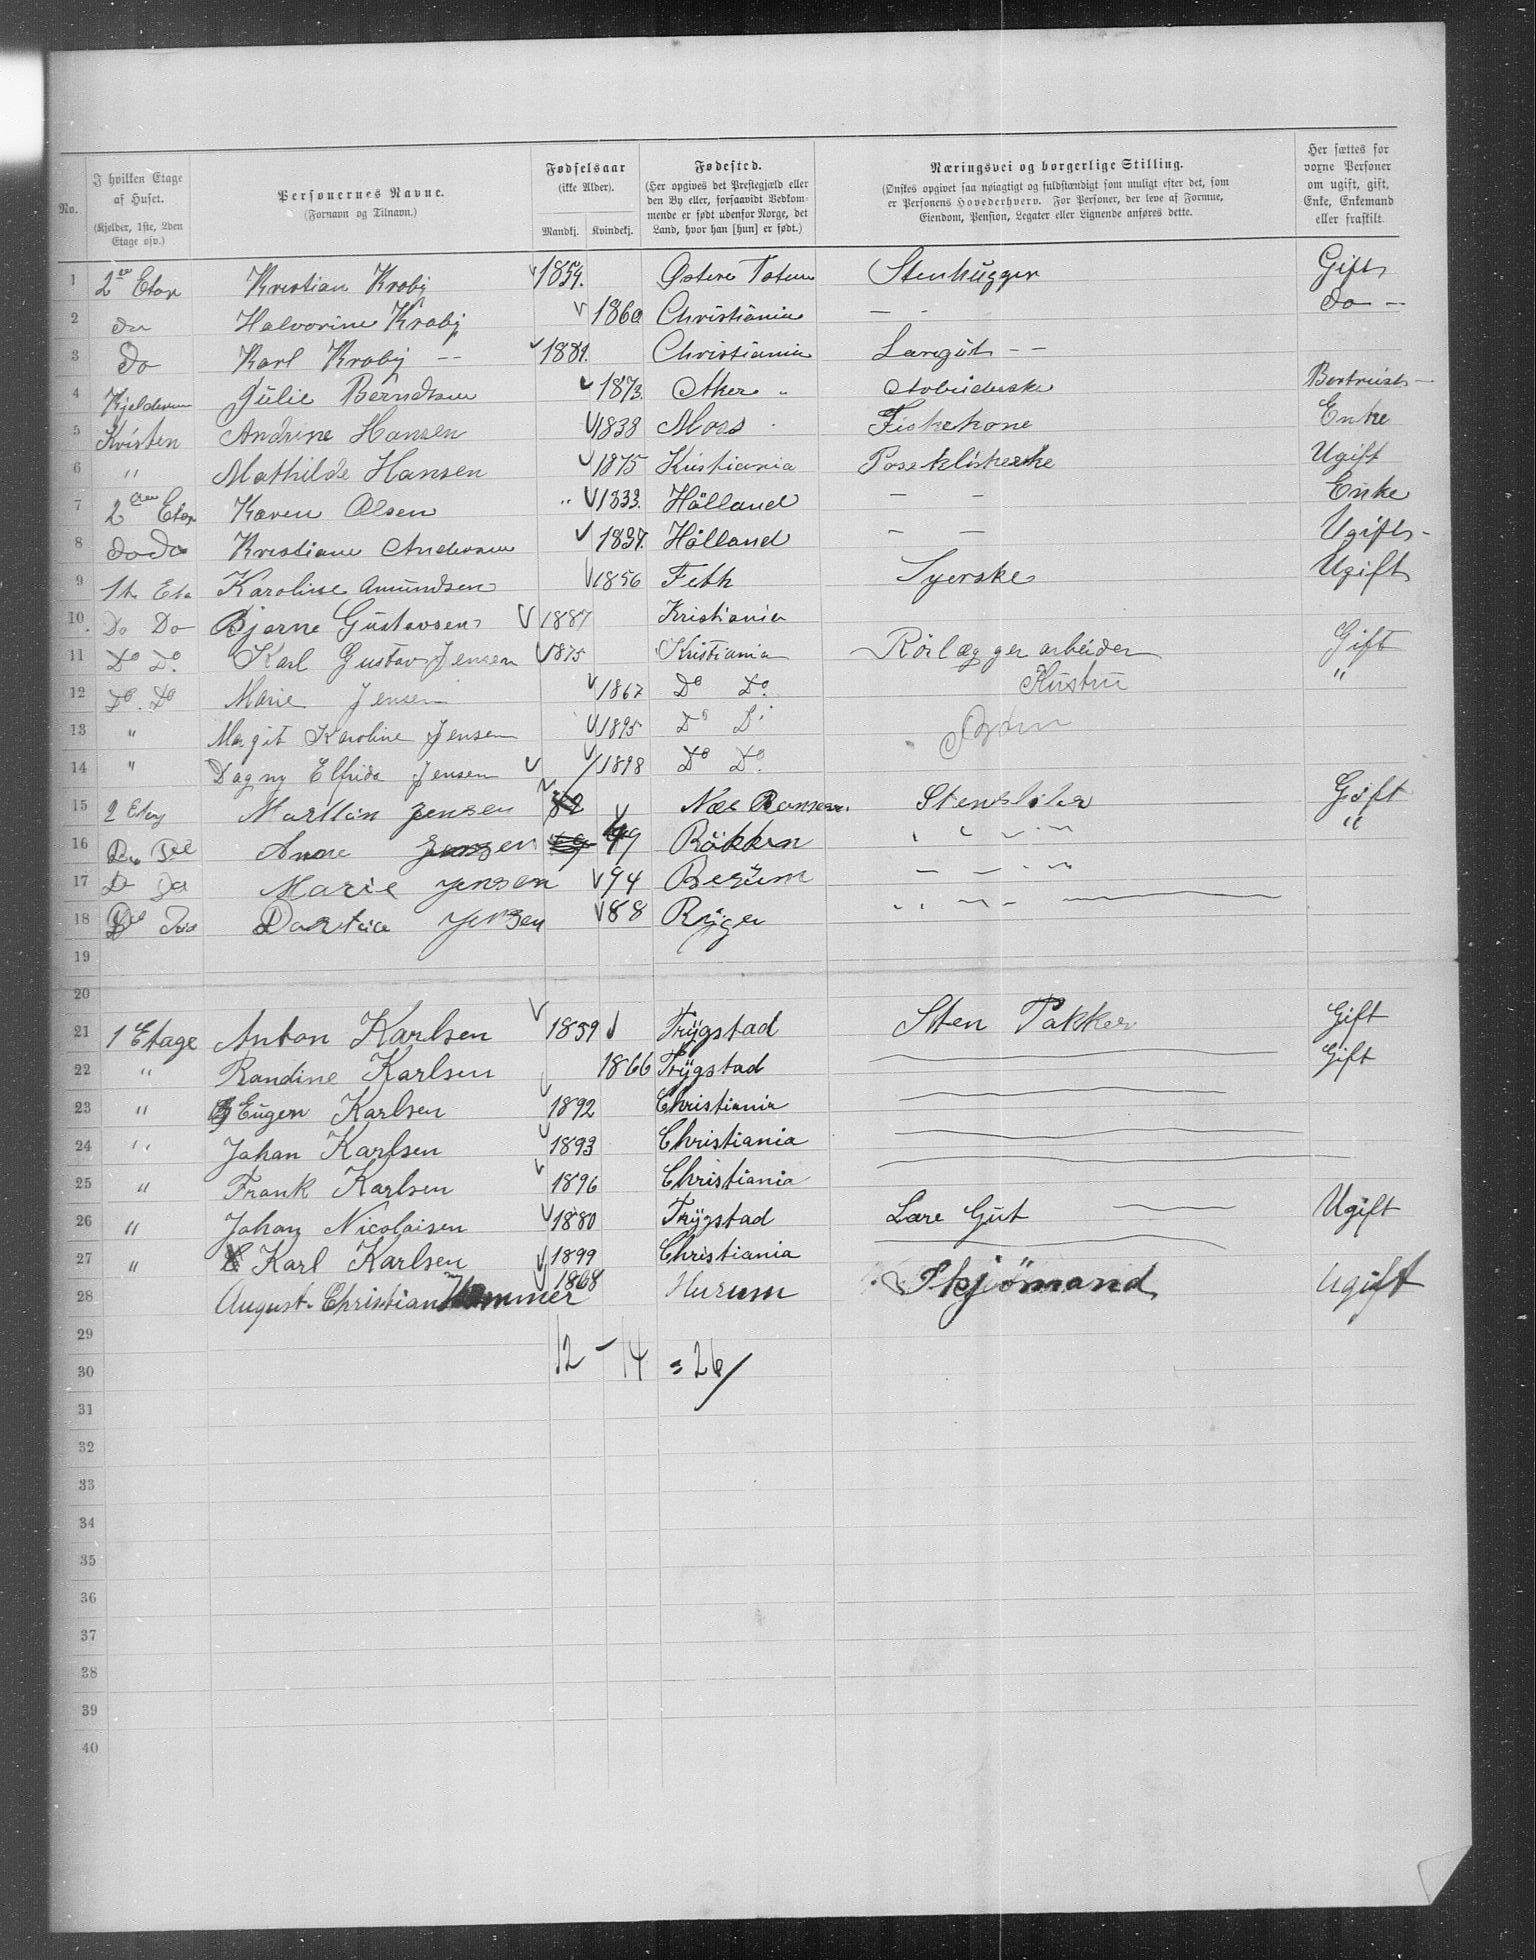 No.
I hvilken Etage af Huset. (Kjelder, 1ste, 2den Etage osv.)
Personernes Navne. (Fornavn og Tilnavn.)
Fødselsaar (ikke Alder). Mandkj. Kvindekj.
Fødested. (Her opgives det Prestegjæld eller den By eller, forsaavidt Bedkommende er født udenfor Norge, det Land, hvor han [hun] er født.)
Næringsvei og borgerlige Stilling. (Ønskes opgivet saa nøiagtigt og fuldstændigt som muligt efter det, som er Personens Hovederhverv. For Personer, der leve af Formue, Eiendom, Pension, Legater eller Lignende anføres dette.)
Her sættes for voxne Personer om ugift, gift, Enke, Enkemand eller fraskilt.
1 Kristian Kroby 1859. Østere Toten Stenhugger Gift
2 do Halvorine Kroby 1860 Christiania — - do —
3 Do Karl Kroby -- 1881. Christiania Læregut - -
4 Kjelderen Julie Berndtsen 1873. Aker „ Arbeiderske
5 Kvisten Andrine Hansen 1838 Moss Fiskekone Enke
6 " Mathilde Hansen 1875 Kristiania Poseklisterske Ugift
7 2den Etag Karen Olsen 1833. Hölland — — Enke
8 do do Kristiane Andersen 1837. Hölland — — Ugift -
9 1ste Eta Karoline Amundsen 1856 Feth Syerske Ugift
10. Do Do Bjarne Gustavsen 1887 Kristiania
11 Do Do. Karl Gustav Jensen 1875 Kristiania Rörlægger arbeider Gift
12 Do. Do Marie Jensen 1867 Do Do. Hustru "
13 " Margit Karoline Jensen 1895 Do Do
14 " Dagny Elfrida Jensen 1898 Do Do.
15 2 Etag Martin Jensen Stensliber Gift
16 Anne Jensen Rökken "
17 D Do Marie Jensen 94 Berüm
18 Jensen 88 Ryge
19
20
21 1 Etage Anton Karlsen 1859 Trygstad Sten Pakker Gift
22 " Randine Karlsen 1866 Trygstad Gift
23 " Eugen Karlsen 1892 Christiania
24 " Johan Karlsen 1893 Christiania
25 " Frank Karlsen 1896 Christiania
26 " Johan Nicolaisen 1880 Trygstad Lære Gut Ugift
27 " Karl Karlsen 1899 Christiania
28 August Christian Hammer 1868 Hurum Skjömand Ugift
29
12 - 14 = 26/
30
31
32
33
34
35
36
37
38
39
40